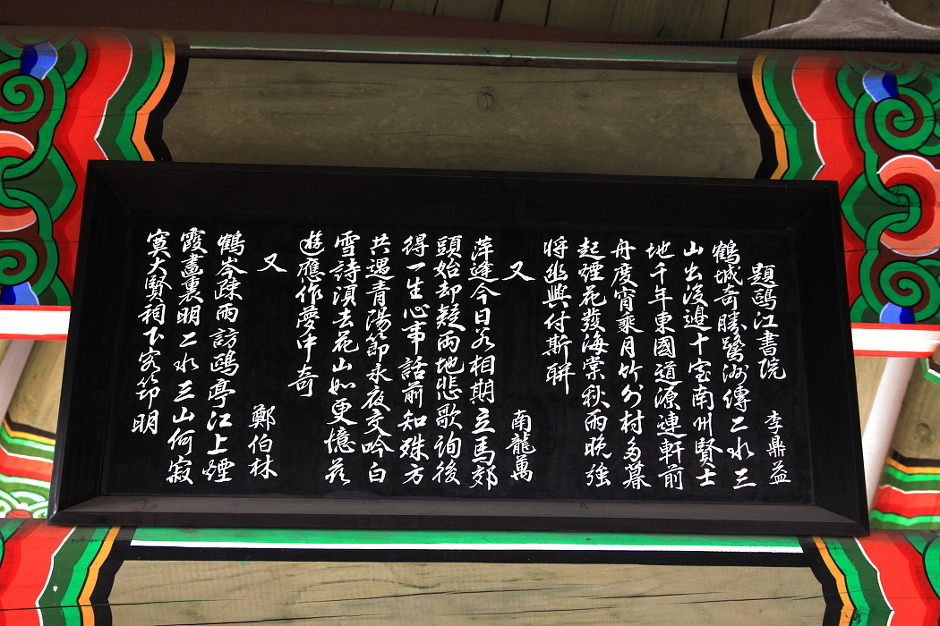 題鷗江書院 李鼎益
鶴城奇勝鷺洲傳二水三
山出後邊十室南州賢士
地千年東國道源連軒前
舟度宵乘月竹外村多暮
起煙花發海棠秋雨晩強
將幽興付斯聯
又 南龍萬
萍逢今日若相期立馬郊
頭始却疑兩地悲歌詢後
得一生心事話前知殊方
共遇青陽節永夜交吟白
雪詩須去花山如更憶茲
遊應作夢中奇
又 鄭伯林
鶴岑疎雨訪鷗亭江上煙
霞畫裏明二水三山何寂
寞大賢祠下客筇明